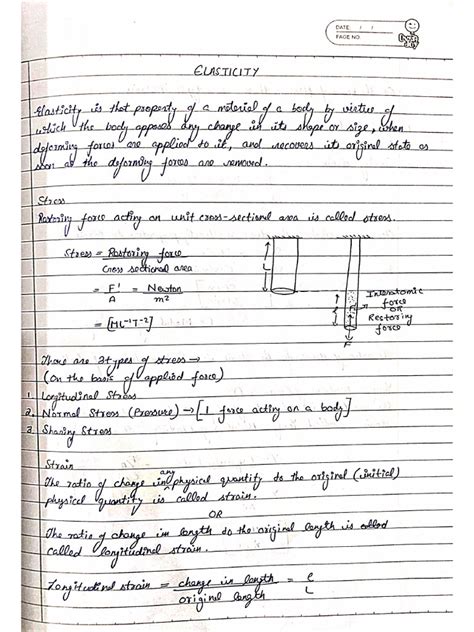 DATE / /
PAGE NO.
ELASTICITY
Elasticity is that property of a material of a body by virtue of
which the body opposes any change in its shape or size, when
deforming forces are applied to it, and recovers its original state as
soon as the deforming forces are removed.
Stress
Restoring force acting on unit cross-sectional area is called stress.
Stress = Restoring force
Cross sectional area
= F' = Newton
A m²
= [ML⁻¹T⁻²]
L
Interatomic
force
OR
Restoring
force
F
There are 3 types of stress →
(On the basis of applied force)
1. Longitudinal Stress
2. Normal Stress (Pressure) → [⊥ force acting on a body]
3. Shearing Stress
Strain
any
The ratio of change in physical quantity to the original (initial)
physical quantity is called strain.
OR
The ratio of change in length to the original length is
called longitudinal strain.
Longitudinal strain = change in length = e
original length L